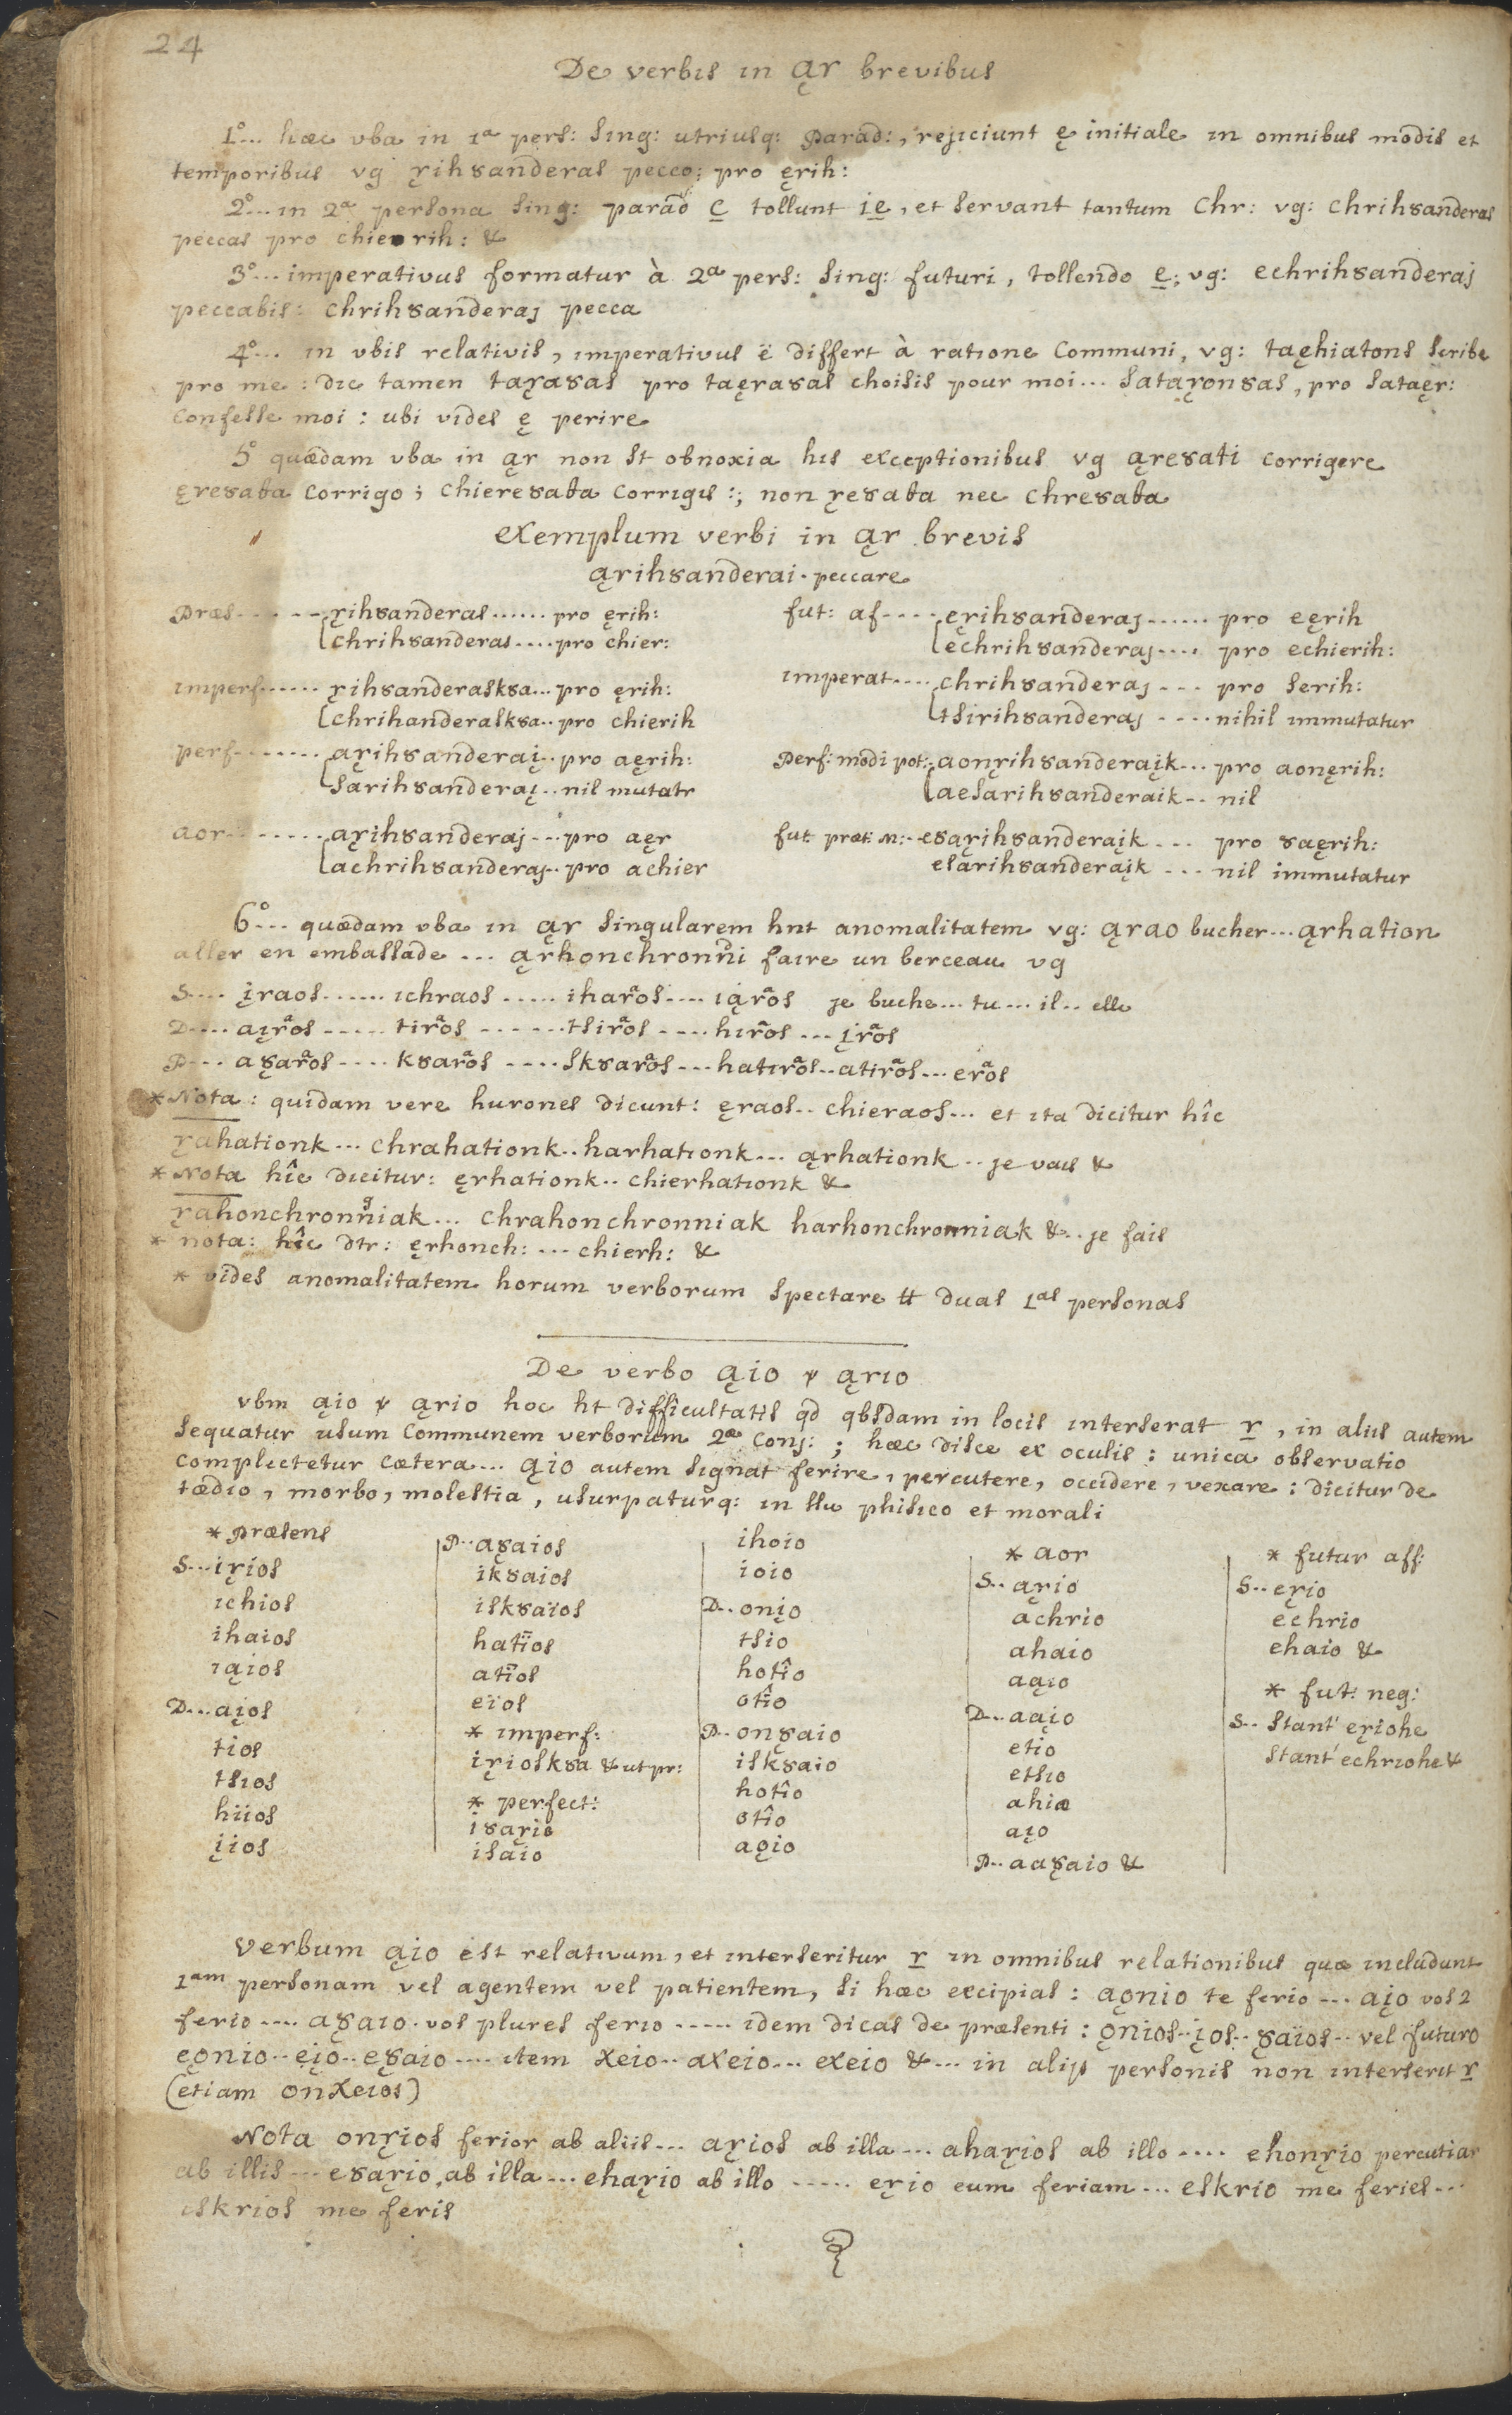 24
De verbis in ąr brevibus
1°... hæc vba in 1ª pers: sing: utriusq: Parad:, rejiciunt ę initiale in omnibus modis et
temporibus vg r̨ih8anderas pecco; pro ęrih:
2°... in 2ª persona sing: parad c tollunt ie, et servant tantum chr: vg: chrih8anderas
peccas pro chierih: &
3°... imperativus formatur à 2ª pers: sing: futuri, tollendo e; vg: echrih8anderaj
peccabis: chrih8anderaj pecca
4°... in vbis relativis, imperativus ē differt à ratione communi, vg: taęhiatons scribe
pro me: dic tamen tar̨a8as pro taęra8as choisis pour moi... satar̨on8as, pro sataęr:
confesse moi: ubi vides ę perire
5° quædam vba in ąr non st obnoxia his exceptionibus vg ąre8ati corrigere
ęre8ata corrigo; chiere8ata corrigis:; non r̨e8ata nec chre8ata
exemplum verbi in ąr brevis
ąrih8anderai. peccare
Præs....... r̨ih8anderas...... pro ęrih:
chrih8anderas.... pro chier:
imperf...... r̨ih8anderasksa... pro ęrih:
chrihanderasksa.. pro chierih
perf........ ar̨ih8anderaį.. pro aęrih:
sarih8anderaį.. nil mutatr
aor........ ar̨ih8anderaj... pro aęr
achrih8anderaj.. pro achier
fut: af.... ęrih8anderaj...... pro eęrih
echrih8anderaj.... pro echierih:
imperat.... chrih8anderaj.... pro serih:
tsirih8anderaj.... nihil immutatur
Perf: modi pot:. aonr̨ih8anderaįk... pro aonęrih:
aesarih8anderaik... nil
fut: præt: M:.. e8ar̨ih8anderaįk.... pro 8aęrih:
esarih8anderaįk.... nil immutatur
6°... quædam vba in ąr singularem hnt anomalitatem vg: ąrao bucher... ąrhation
aller en embassade... ąrhonchronñi faire un berceau vg
S.... įraos...... ichraos...... iharãos.... iąrãos je buche... tu... il.. elle
D.... aįrãos...... tirãos....... tsirãos..... hirãos... įrãos
P... a8arãos.... k8arãos..... sk8arãos... hatirãos.. atirãos... erãos
* Nota: quidam vere hurones dicunt: ęraos.. chieraos... et ita dicitur hîc
r̨ahationk... chrahationk.. harhationk... ąrhationk.. je vais &
* Nota hîc dicitur: ęrhationk.. chierhationk &
r̨ahonchronñiak... chrahonchronniak harhonchronniak &.. je fais
* nota: hîc dtr: ęrhonch:... chierh: &
* vides anomalitatem horum verborum spectare tt duas 1as personas
De verbo ąio v ąrio
vbm ąio v ąrio hoc ht difficultatis qd qbsdam in locis interserat r, in aliis autem
sequatur usum communem verborum 2æ conj:; hæc disce ex oculis: unica observatio
complectetur cætera... ąio autem signat ferire, percutere, occidere, vexare: dicitur de
tædio, morbo, molestia, usurpaturq: in ssu phisico et morali
* Præsens
S... ir̨ios
ichios
ihaios
iąios
D... aįos
tios
tsios
hiios
įios
P.. a8aios
ik8aios
isk8aïos
hatiïos
atiïos
eïos
* imperf:
ir̨iosksa & ut pr:
* perfect:
i8ar̨io
isaio
ihoio
ioio
D.. onįo
tsio
hotîo
otîo
P.. on8aio
isk8aio
hotîo
otîo
aǫio
* aor
S.. ąrio
achrio
ahaio
aąio
D.. aaįo
etio
etsio
ahio
aįo
P.. aa8aio &
* futur aff:
S.. ęrio
echrio
ehaio &
* fut: neg:
S.. stant' ęriohe
stant' echriohe &
Verbum ąio est relativum, et interseritur r in omnibus relationibus quæ includunt
1am personam vel agentem vel patientem, si hæc excipias: aǫnio te ferio... aįo vos 2
ferio.... a8aio. vos plures ferio..... idem dicas de præsenti: ǫnios.. įos.. 8aïos.. vel futuro
eǫnio.. eįo.. e8aio.... item xeio.. axeio... exeio &... in alijs personis non interserit r
(etiam onxeios)
Nota onr̨ios ferior ab aliis... ar̨ios ab illa... ahar̨ios ab illo.... ehonr̨io percutiar
ab illis... e8ar̨io, ab illa... ehar̨io ab illo..... ęrio eum feriam... eskrio me feries...
iskrios me feris